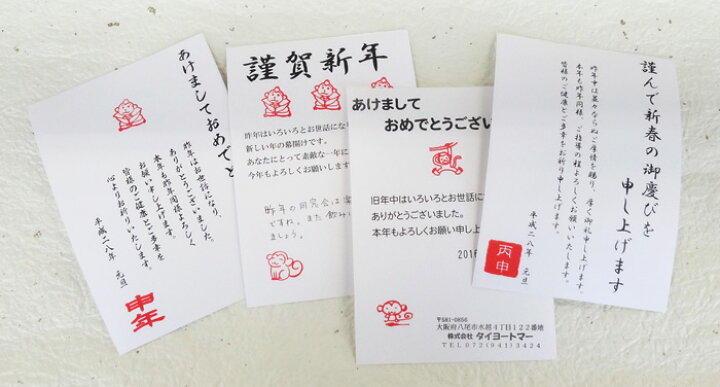 あけましておめでと
昨年はお世話になり、
ありがとうございました。
本年も昨年同様よろしく
お願い申し上げます。
皆様のご健康とご多幸を
心よりお祈りいたします。
平成二八年 元旦
申年
謹賀新年
昨年はいろいろとお世話にな
新しい年の幕開けです。
あなたにとって素敵な一年に
今年もよろしくお願いします
昨年の同窓会は楽
ですね。また飲み
ましょう。
あけまして
おめでとうござい
旧年中はいろいろとお世話に
ありがとうございました。
本年もよろしくお願い申し上
2016
〒581-0856
大阪府八尾市水越4丁目122番地
株式会社 タイヨートマー
TEL072(941)3424
謹んで新春の御慶びを
申し上げます
昨年中は並々ならぬご厚情を賜り、厚く御礼申し上げます。
本年も昨年同様、ご指導の程よろしくお願いいたします。
皆様のご健康とご多幸をお祈り申し上げます。
平成二八年 元旦
丙申